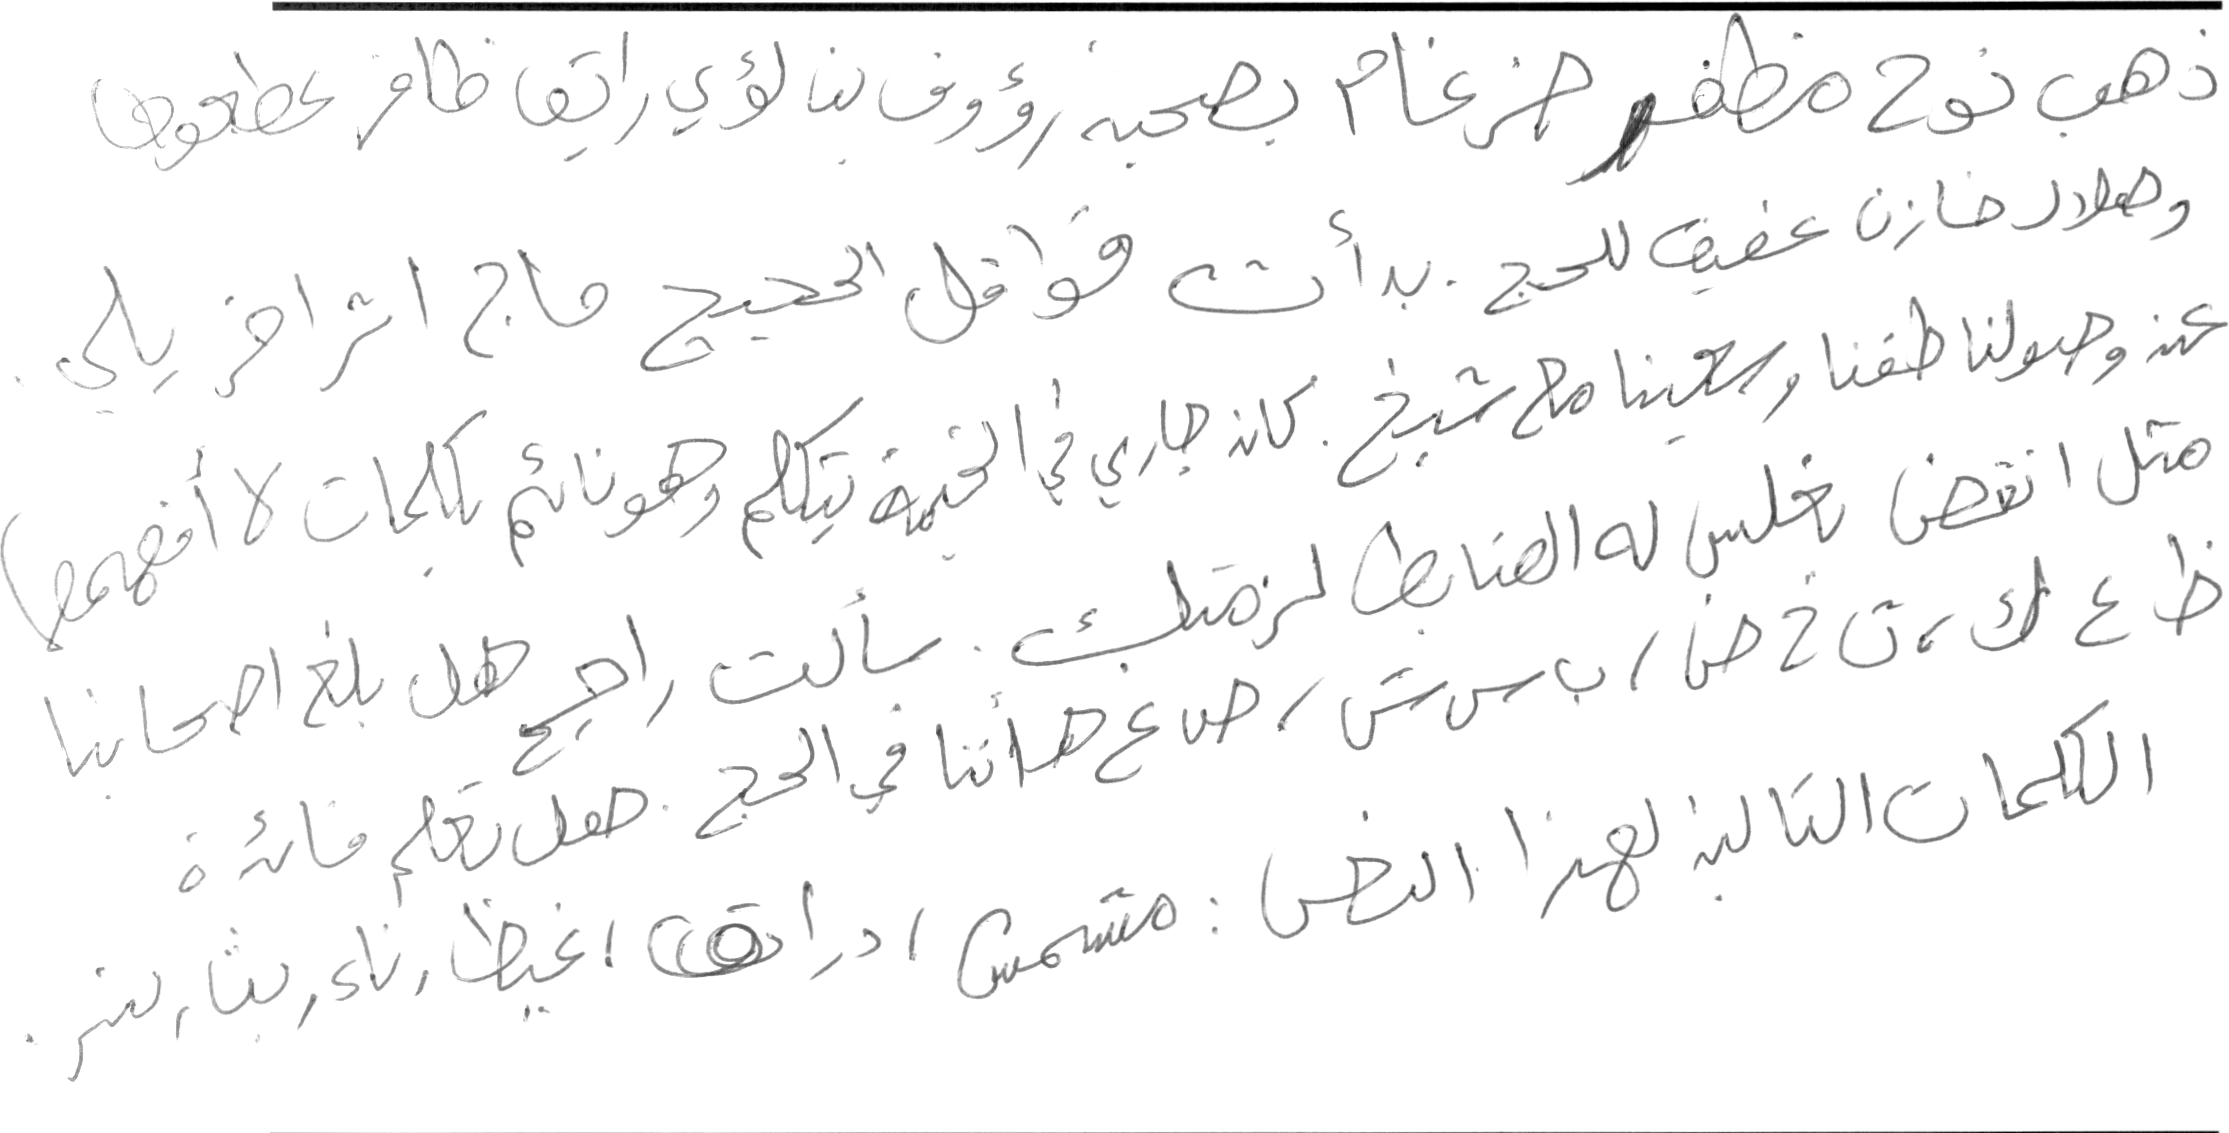 ذهب نوح مظفر ضرغام بصحبة رؤوف بن لؤي راتق ظافر عطعوط
وهلال خازن عفيف للحج . بدأت قوافل الحجيج حاج اثر اخر يلي .
عند وصولنا طفنا وسعينا مع شيخ . كان جاري في الخيمة يتكلم وهو نائم بكلمات لا أفهمها
مثل انقض تغلس له الضابط لزملك . سألت راجح هل بلغ اصحابنا
ظ ع ك ، ق خ ض ، ب س ش ، ص ع ط أثنا في الحج . هل تعلم فائدة
الكلمات التالية لهذا النص : مشمس ، دراق ، غيظ ، ناء ، بث ، سنر .